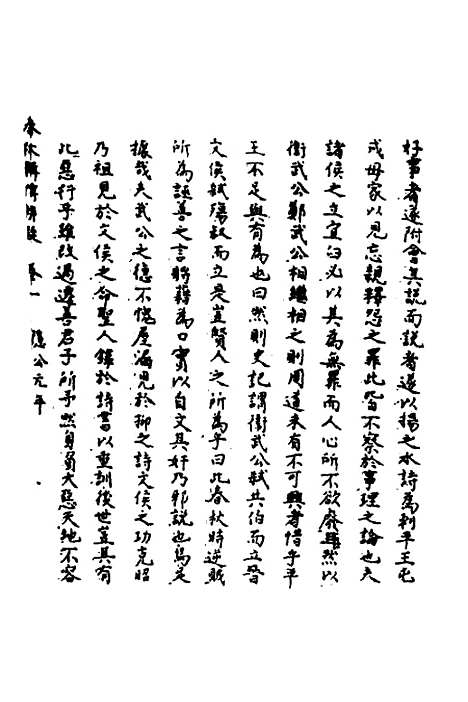 好事者遂附會其說而說者遂以揚之水詩為刺平王屯
戍母家以見忘親釋怨之罪此皆不察於事理之論也夫
諸侯之立宜臼必以其為無罪而人心所不欲廢雖然以
衛武公鄭武公相繼相之則周道未有不可興者惜乎平
王不足與有為也曰然則史記謂衛武公弒共伯而立晉
文侯弒殤叔而立是豈賢人之所為乎曰此春秋時逆賊
所為誣善之言將藉為口實以自文其奸乃邪說也烏足
據哉夫武公之德不愧屋漏見於抑之詩文侯之功克昭
乃祖見於文侯之命聖人錄於詩書以垂訓後世豈其有
此惡行乎雖改過遷善君子所予然身負大惡天地不容
春秋 卷一 隱公元年